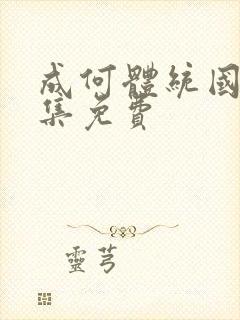 成何體統國
集免費
靈芎